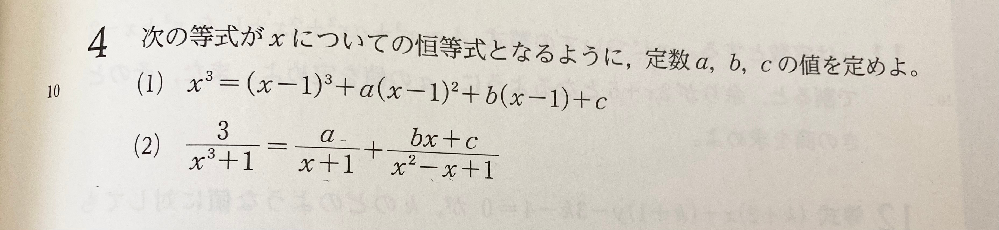 4 次の等式が x についての恒等式となるように，定数 a, b, c の値を定めよ。
10 (1) x³＝(x－1)³＋a(x－1)²＋b(x－1)＋c
(2) 3/(x³＋1)＝a/(x＋1)＋(bx＋c)/(x²－x＋1)